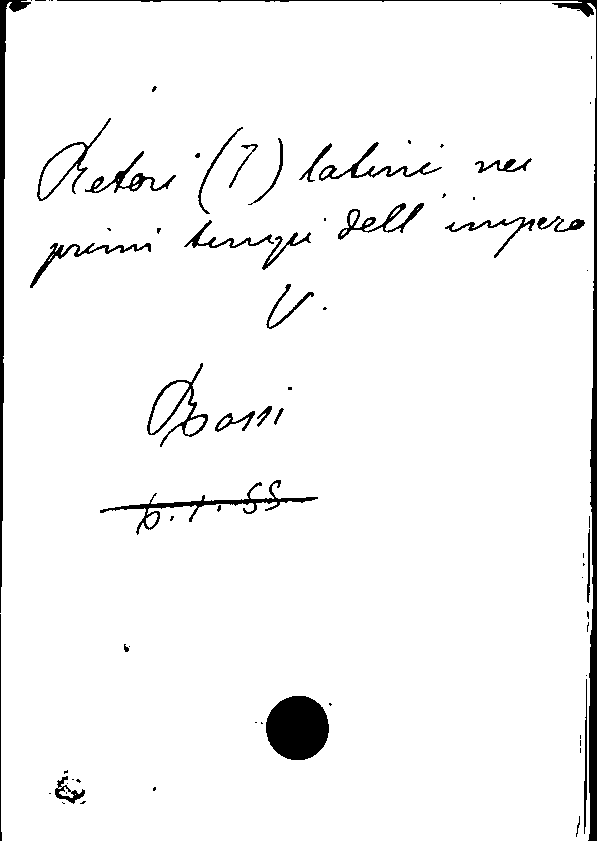 Retori (I) latini nei
primi tempi dell'impero
V.
Rossi
6.1.55